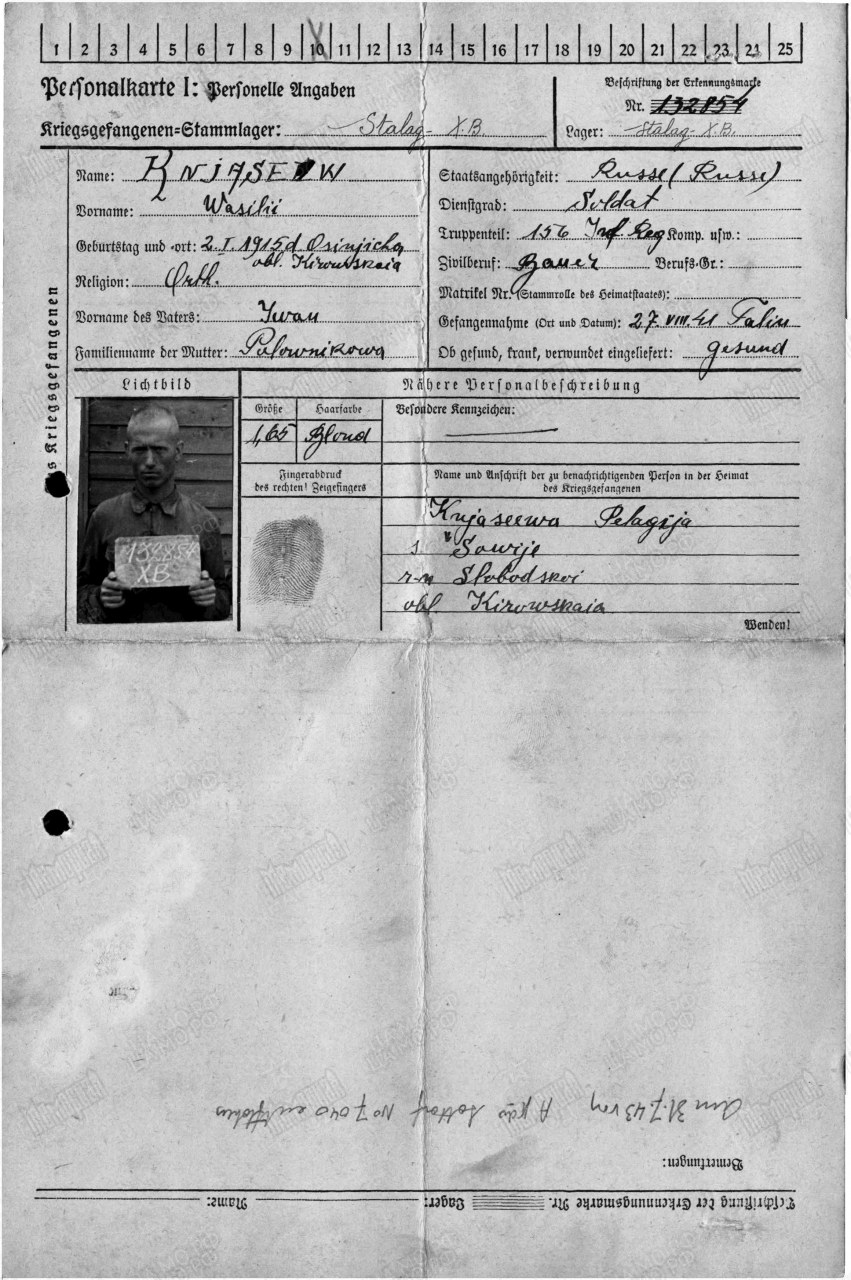 1 2 3 4 5 6 7 8 9 10 11 12 13 14 15 16 17 18 19 20 21 22 23 24 25
Personalkarte I: Personelle Angaben
Kriegsgefangenen-Stammlager: Stalag X.B.
Beschriftung der Erkennungsmarke
Nr. 132854
Lager: Stalag X.B.
des Kriegsgefangenen
Name: KNJASEW
Vorname: Wasilii
Geburtstag und -ort: 2.I.1915 d Osinjicha
obl. Kirowskaia
Religion: Orth.
Vorname des Vaters: Iwan
Familienname der Mutter: Polownikowa
Staatsangehörigkeit: Russe (Russe)
Dienstgrad: Soldat
Truppenteil: 156 Inf. Reg Komp. usw.:
Zivilberuf: Bauer Berufs-Gr.:
Matrikel Nr. (Stammrolle des Heimatstaates):
Gefangennahme (Ort und Datum): 27.VIII.41 Talin
Ob gesund, krank, verwundet eingeliefert: gesund
Lichtbild
132854
XB
Nähere Personalbeschreibung
Größe Haarfarbe Besondere Kennzeichen:
1,65 Blond
Fingerabdruck
des rechten! Zeigefingers
Name und Anschrift der zu benachrichtigenden Person in der Heimat
des Kriegsgefangenen
Knjaseewa Pelagija
s. Sowije
r-n Slobodskoi
obl. Kirowskaia
Wenden!
Beschriftung der Erkennungsmarke Nr. Lager: Name:
Bemerkungen:
Am 31.7.43 A Kdo No 7040 entflohen